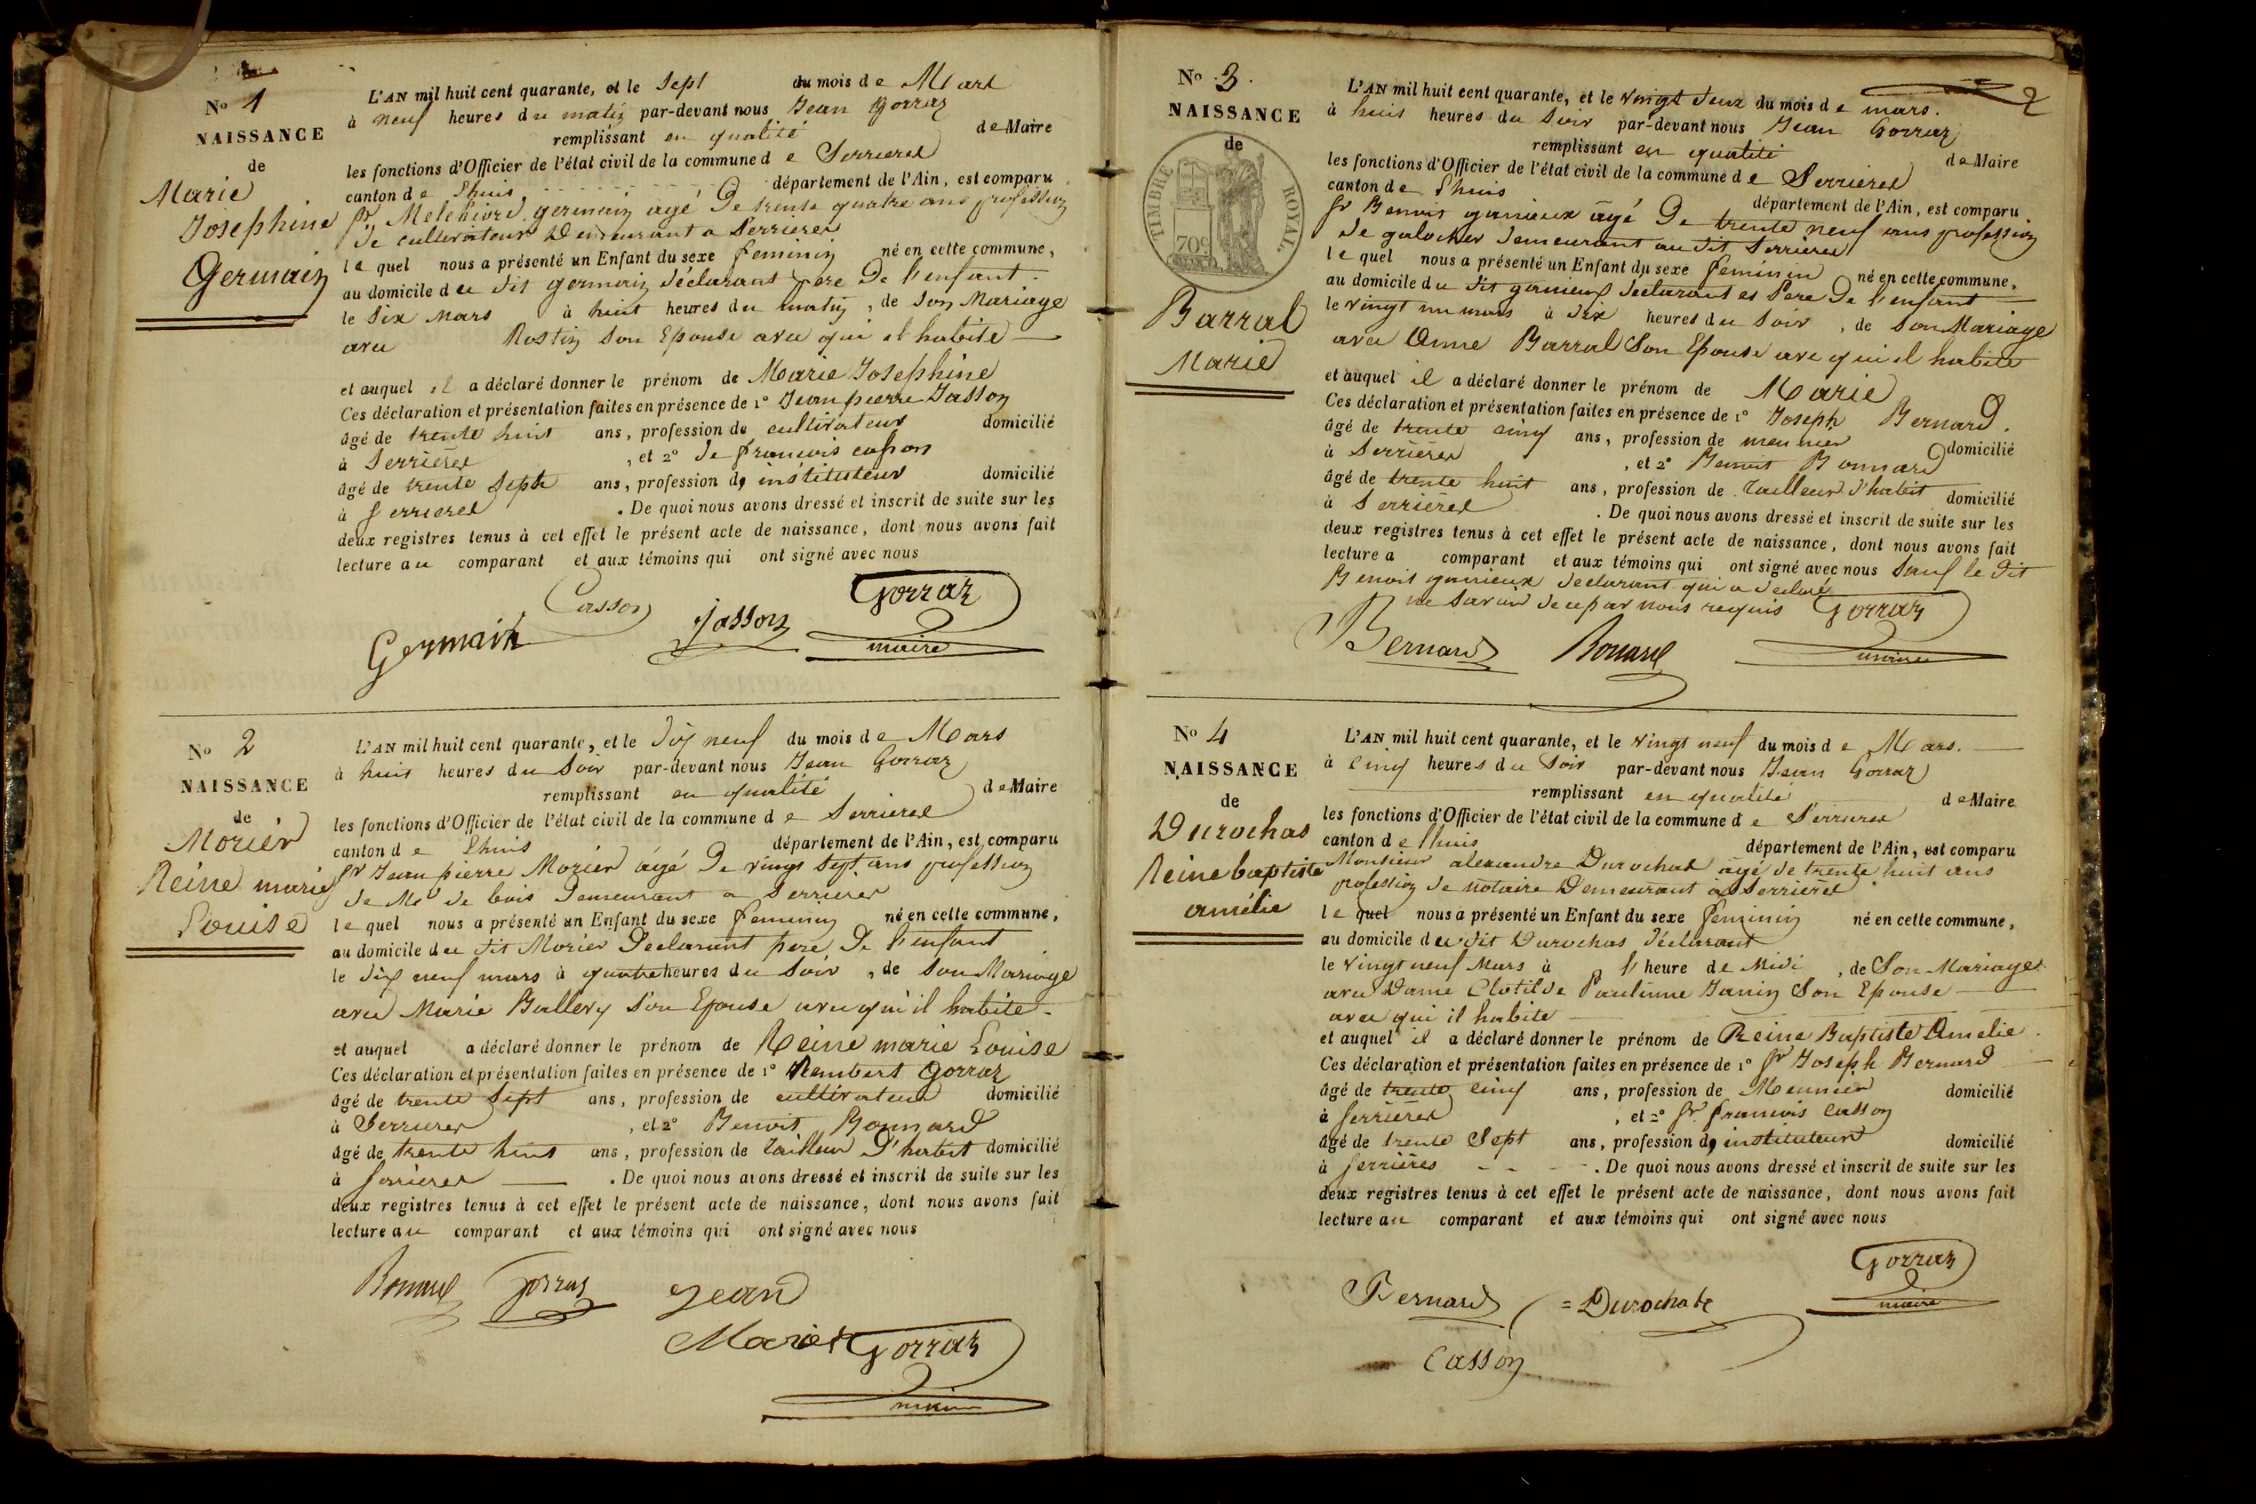 No 1
NAISSANCE
de
Marie
Josephine
Germain
L'AN mil huit cent quarante, et le Sept du mois de Mars
à neuf heures du matin par-devant nous Jean Gorraz
remplissant en qualité de Maire
les fonctions d'Officier de l'état civil de la commune de Serrieres
canton de Lhuis département de l'Ain, est comparu
Sr Melchior germain agé De trente quatre ans profession
de cultivateur Demeurant a Serrieres
le quel nous a présenté un Enfant du sexe feminin né en cette commune,
au domicile du dit germain déclarant pere De l'enfant
le Six Mars à huit heures du matin, de Son Mariage
avec Rostin Son Epouse avec qui il habite
et auquel il a déclaré donner le prénom de Marie Josephine
Ces déclaration et présentation faites en présence de 1° Jean pierre Jasson
âgé de trente huit ans, profession de cultivateur domicilié
à Serrières, et 2° de francois casson
âgé de trente Sept ans, profession d'instituteur domicilié
à Serrieres. De quoi nous avons dressé et inscrit de suite sur les
deux registres tenus à cet effet le présent acte de naissance, dont nous avons fait
lecture au comparant et aux témoins qui ont signé avec nous
Casson Jasson Gorraz
Germain maire
No 2
NAISSANCE
de
Morier
Reine marie
Louise
L'AN mil huit cent quarante, et le dix neuf du mois de Mars
à huit heures du Soir par-devant nous Jean Gorraz
remplissant en qualité de Maire
les fonctions d'Officier de l'état civil de la commune de Serrieres
canton de Lhuis département de l'Ain, est comparu
Sr Jean pierre Morier âgé De vingt Sept ans profession
de Md de bois Demeurant a Serrieres
le quel nous a présenté un Enfant du sexe feminin né en cette commune,
au domicile du dit Morier Déclarant pere De l'enfant
le dix neuf mars à quatre heures du Soir, de Son Mariage
avec Marie Ballery Son Epouse avec qui il habite
et auquel a déclaré donner le prénom de Reine marie Louise
Ces déclaration et présentation faites en présence de 1° Rembert Gorraz
âgé de trente Sept ans, profession de cultivateur domicilié
à Serrieres, et 2° Benoit Bonnard
âgé de trente huit ans, profession de tailleur d'habit domicilié
à Serrieres. De quoi nous avons dressé et inscrit de suite sur les
deux registres tenus à cet effet le présent acte de naissance, dont nous avons fait
lecture au comparant et aux témoins qui ont signé avec nous
Bonnard Gorraz Jean
Morier Gorraz
maire
2
No 3.
NAISSANCE
de
TIMBRE ROYAL
70c
Barral
Marie
L'AN mil huit cent quarante, et le vingt deux du mois de mars.
à huit heures du Soir par-devant nous Jean Gorraz
remplissant en qualité de Maire
les fonctions d'Officier de l'état civil de la commune de Serrieres
canton de Lhuis département de l'Ain, est comparu
Sr Benoit ganieux âgé De trente neuf ans profession
de galocher demeurant au dit Serrieres
le quel nous a présenté un Enfant du sexe feminin né en cette commune,
au domicile du dit ganieux déclarant et Pere De l'enfant
le vingt un mars à dix heures du Soir, de Son Mariage
avec Anne Barral Son Epouse avec qui il habite
et auquel il a déclaré donner le prénom de Marie
Ces déclaration et présentation faites en présence de 1° Joseph Bernard.
âgé de trente cinq ans, profession de meunier domicilié
à Serrières, et 2° Benoit Bonnard
âgé de trente huit ans, profession de tailleur d'habit domicilié
à Serrières. De quoi nous avons dressé et inscrit de suite sur les
deux registres tenus à cet effet le présent acte de naissance, dont nous avons fait
lecture a comparant et aux témoins qui ont signé avec nous Sauf le dit
Benoit ganieux declarant qui a declaré
ne Savoir de ce par nous requis Gorraz
Bernard Bonnard maire
No 4
NAISSANCE
de
Durochas
Reine baptiste
amélie
L'AN mil huit cent quarante, et le vingt neuf du mois de Mars.
à cinq heures du Soir par-devant nous Jean Gorraz
remplissant en qualité de Maire
les fonctions d'Officier de l'état civil de la commune de Serrieres
canton de Lhuis département de l'Ain, est comparu
Monsieur alexandre Durochat âgé de trente huit ans
profession de notaire Demeurant à Serrières
le quel nous a présenté un Enfant du sexe feminin né en cette commune,
au domicile du dit Durochas déclarant
le vingt neuf Mars à l'heure de Midi, de Son Mariage
avec Dame Clotilde Paulinne Janin Son Epouse
avec qui il habite
et auquel il a déclaré donner le prénom de Reine Baptiste Amelie.
Ces déclaration et présentation faites en présence de 1° Sr Joseph Bernard
âgé de trente cinq ans, profession de Meunier domicilié
à Serrieres, et 2° Sr francois casson
âgé de trente Sept ans, profession d'instituteur domicilié
à Serrières. De quoi nous avons dressé et inscrit de suite sur les
deux registres tenus à cet effet le présent acte de naissance, dont nous avons fait
lecture au comparant et aux témoins qui ont signé avec nous
Gorraz
Bernard Durochat maire
Casson